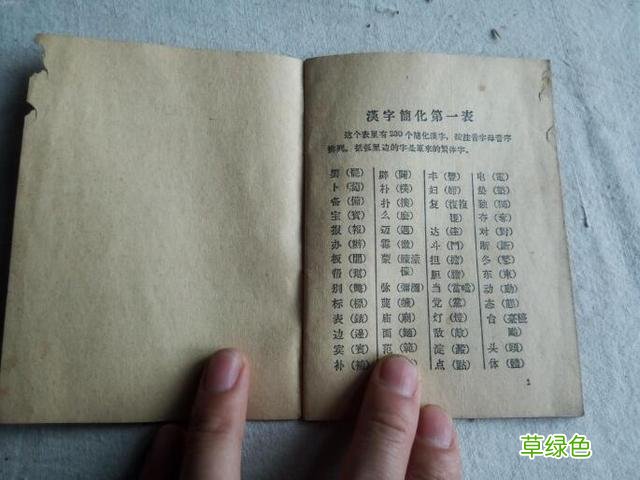 漢字簡化第一表
这个表里有230个簡化漢字，按注音字母音序
排列。括弧里边的字是原来的繁体字。
罢（罷） 辟（闢） 丰（豐） 电（電）
卜（蔔） 朴（樸） 妇（婦） 垫（墊）
备（備） 扑（撲） 复（復複 独（獨）
宝（寶） 么（麽） 覆） 夺（奪）
报（報） 迈（邁） 达（達） 对（對）
办（辦） 霉（黴） 斗（鬥） 断（斷）
板（闆） 蒙（矇濛 担（擔） 冬（鼕）
帮（幫） 懞） 胆（膽） 东（東）
别（彆） 弥（彌瀰） 当（當噹） 动（動）
标（標） 蔑（衊） 党（黨） 态（態）
表（錶） 庙（廟） 灯（燈） 台（臺檯
边（邊） 面（麵） 敌（敵） 颱）
宾（賓） 范（範） 淀（澱） 头（頭）
补（補 点（點） 体（體）
1
草绿色